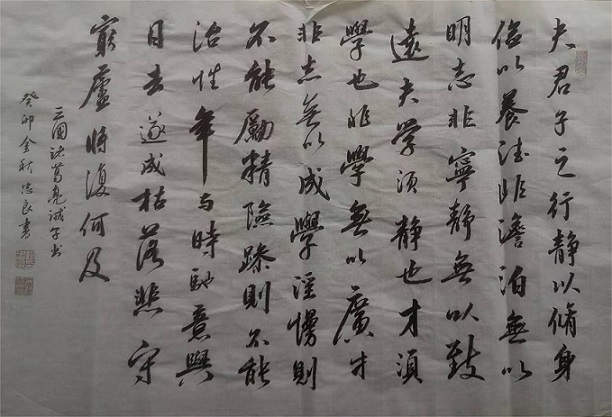 夫君子之行靜以脩身
儉以養德非澹泊無以
明志非寧静無以致
遠夫学須静也才須
學也非學無以廣才
非志無以成學淫慢則
不能勵精險躁則不能
治性年与時馳意與
日去遂成枯落悲守
窮廬將復何及
三國諸葛亮誡子书
癸卯金秋忠良書